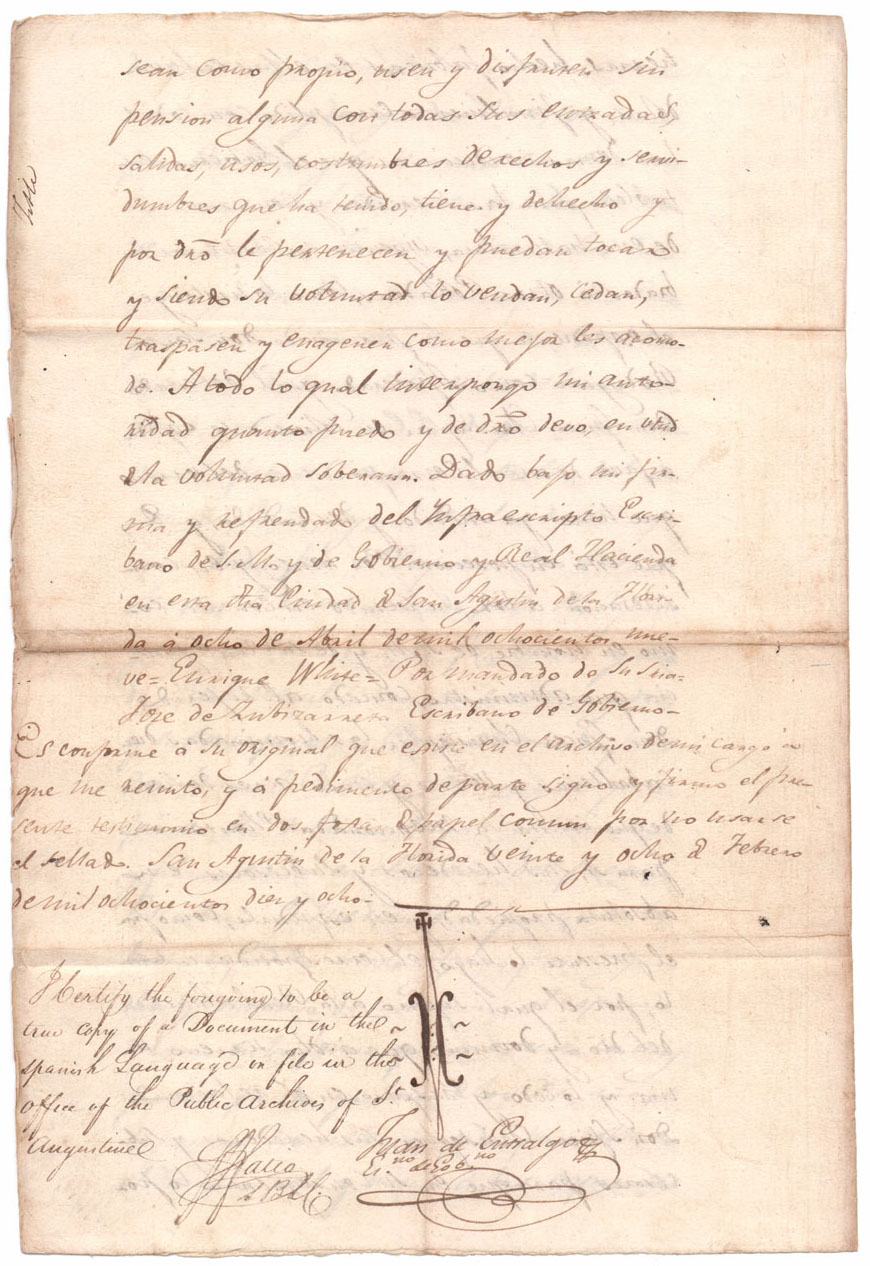 sean como propio, usen y disfruten sin
pension alguna con todas sus entradas,
salidas, usos, costumbres derechos y servi-
dumbres que ha tenido, tiene y de hecho y
por dro le pertenecen y puedan tocar
y siendo su voluntad lo vendan, cedan,
traspasen y enagenen como mejor les acomo-
de. A todo lo qual interpongo mi auto-
ridad quanto puedo y de dro devo, en virtd
de la voluntad soberana. Dado bajo mi fir-
ma y refrendado del Infraescripto Escri-
bano de S. M. y de Gobierno y Real Hacienda
en esta dha Ciudad de San Agustin de la Flori-
da á ocho de Abril de mil ochocientos nue-
ve = Enrique White = Por mandado de su sria =
Jose de Zubizarreta Escribano de Gobierno -
Es conforme á su original que existe en el archivo de mi cargo a
que me remito, y á pedimento de parte signo y firmo el pre-
sente testimonio en dos fojas de papel comun por no usarse
el sellado. San Agustin de la Florida veinte y ocho de Febrero
de mil ochocientos diez y ocho -
I Certify the foregoing to be a
true copy of a Document in the
Spanish Language on file in the
office of the Public Archives of St
Augustine
Juan de Entralgo
Esno de Gobno